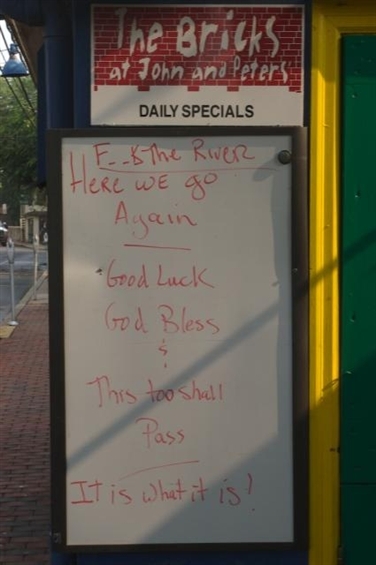 The Bricks
at John and Peter's
DAILY SPECIALS
F__k The River
Here we go
Again
Good Luck
God Bless
&
This too shall
Pass
It is what it is!